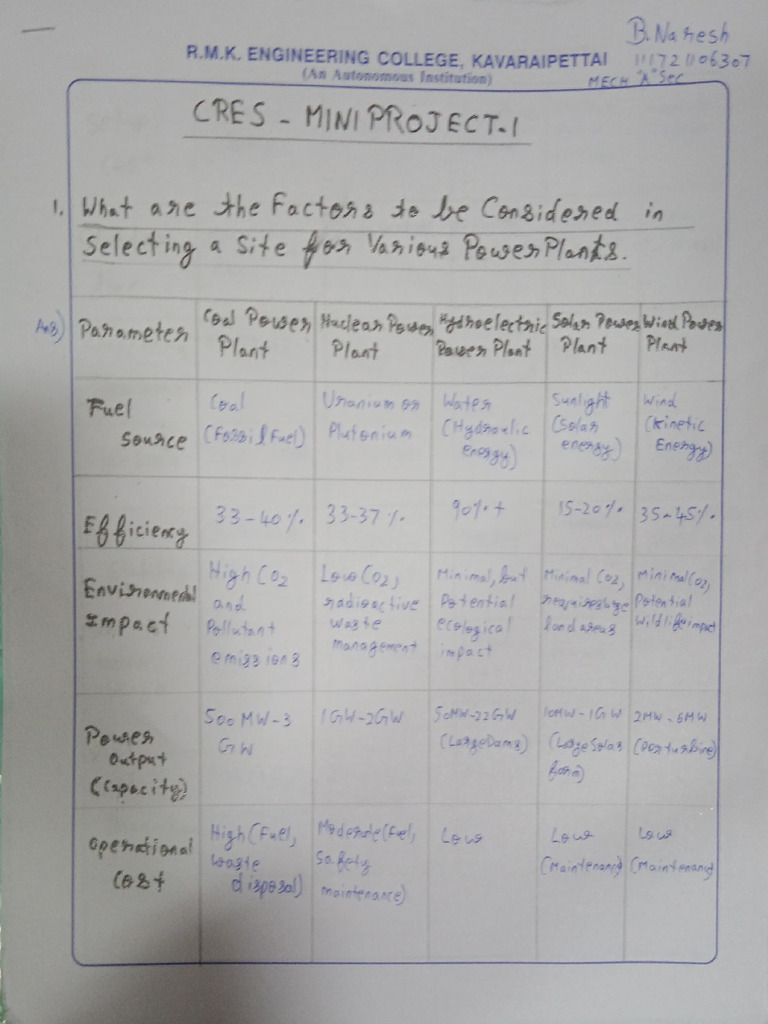 B. Naresh
R.M.K. ENGINEERING COLLEGE, KAVARAIPETTAI
111721106307
(An Autonomous Institution)
MECH "A" Sec
CRES - MINI PROJECT-1
1. What are the Factors to be Considered in
Selecting a Site for Various Power Plants.
Ans)
Parameter
Coal Power
Plant
Nuclear Power
Plant
Hydroelectric
Power Plant
Solar Power
Plant
Wind Power
Plant
Fuel
Source
Coal
(Fossil Fuel)
Uranium or
Plutonium
Water
(Hydraulic
energy)
Sunlight
(Solar
energy)
Wind
(Kinetic
Energy)
Efficiency
33-40%
33-37%
90%+
15-20%
35-45%
Environmental
Impact
High CO2
and
Pollutant
emissions
Low CO2,
radioactive
waste
management
Minimal, but
Potential
ecological
impact
Minimal CO2,
land areas
Minimal CO2,
Potential
wildlife impact
Power
Output
(Capacity)
500 MW-3
GW
1GW-2GW
50MW-22GW
(Large Dams)
10MW-1GW
(Large Solar
farm)
2MW-6MW
(Per turbine)
Operational
Cost
High (Fuel,
waste
disposal)
Moderate (Fuel,
Safety
maintenance)
Low
Low
(Maintenance)
Low
(Maintenance)